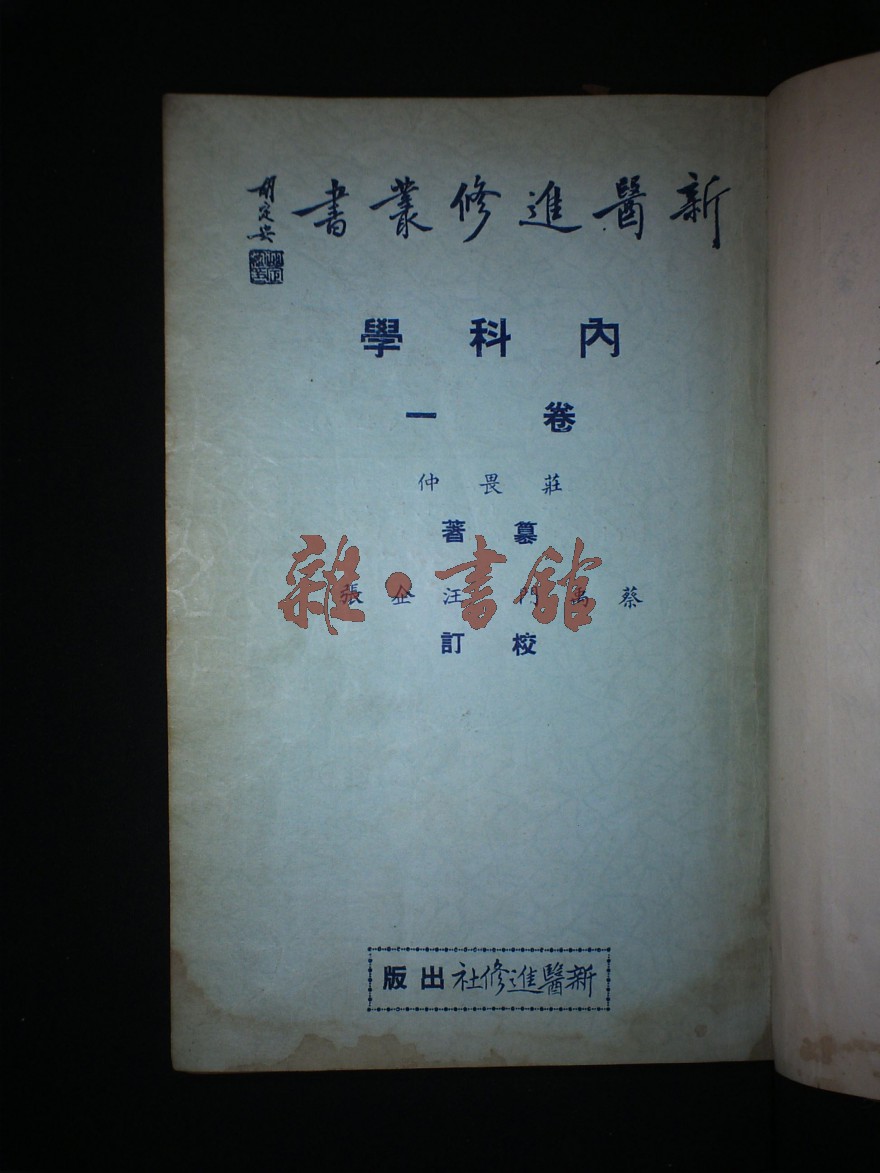 新醫進修叢書
胡定安
內科學
卷一
莊畏仲
纂著
蔡禹門 汪企張
雜·書館
校訂
新醫進修社出版